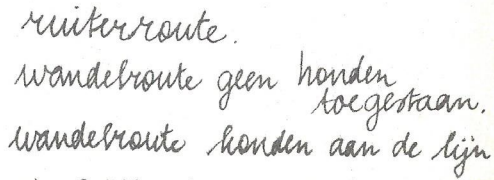 ruiterroute.
wandelroute geen honden
toegestaan.
wandelroute honden aan de lijn